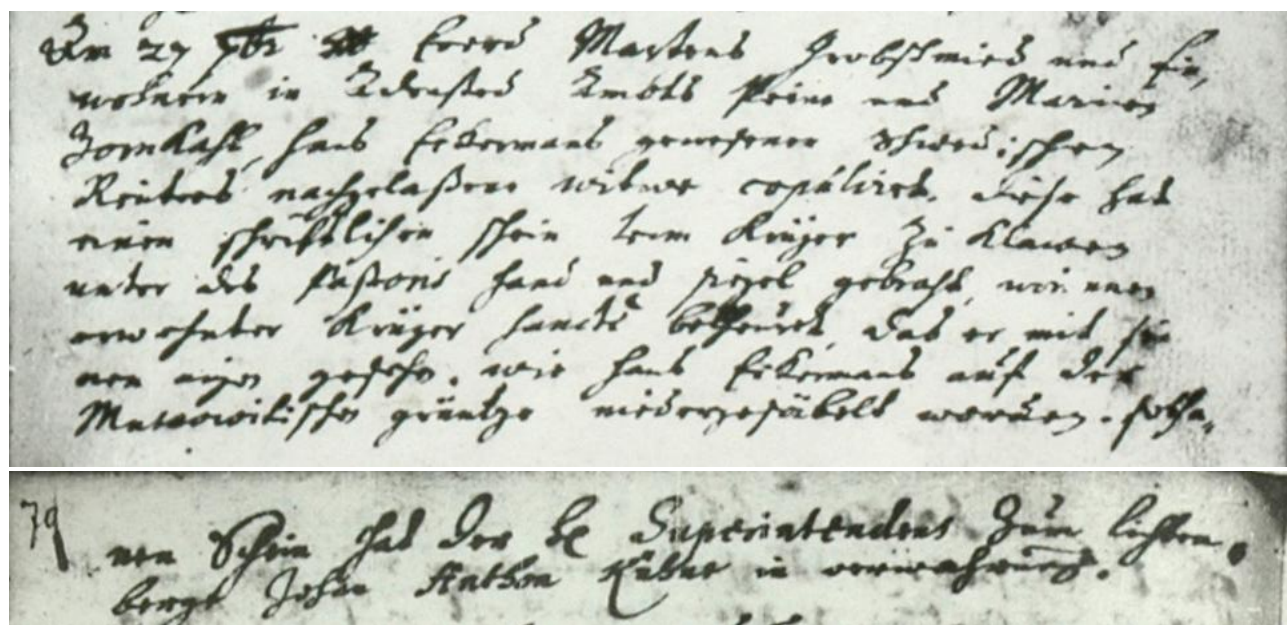 Am 27 7br Everd Martens Grobschmied und Ein,
wohner in Adensted Ambts Peine und Marien
Zornkahl, Hans Eckermans gewesener schwedischen
Reuters nachgelaßene witwe copulirt. diese hat
einen schriftlichen schein vom Krüger zu Klawen
unter des Pastoris hand und siegel gebracht, worinnen
erwehnter Krüger bethewret, das er mit sei
nen augen gesehn, wie Hans Eckermans auf der
Muscowitischen gräntze niedergesäbelt worden. sotha,
79
nen Schein hat der H Superintendens Zum lichten,
berge Johan Anthon Kühne in verwahrung.